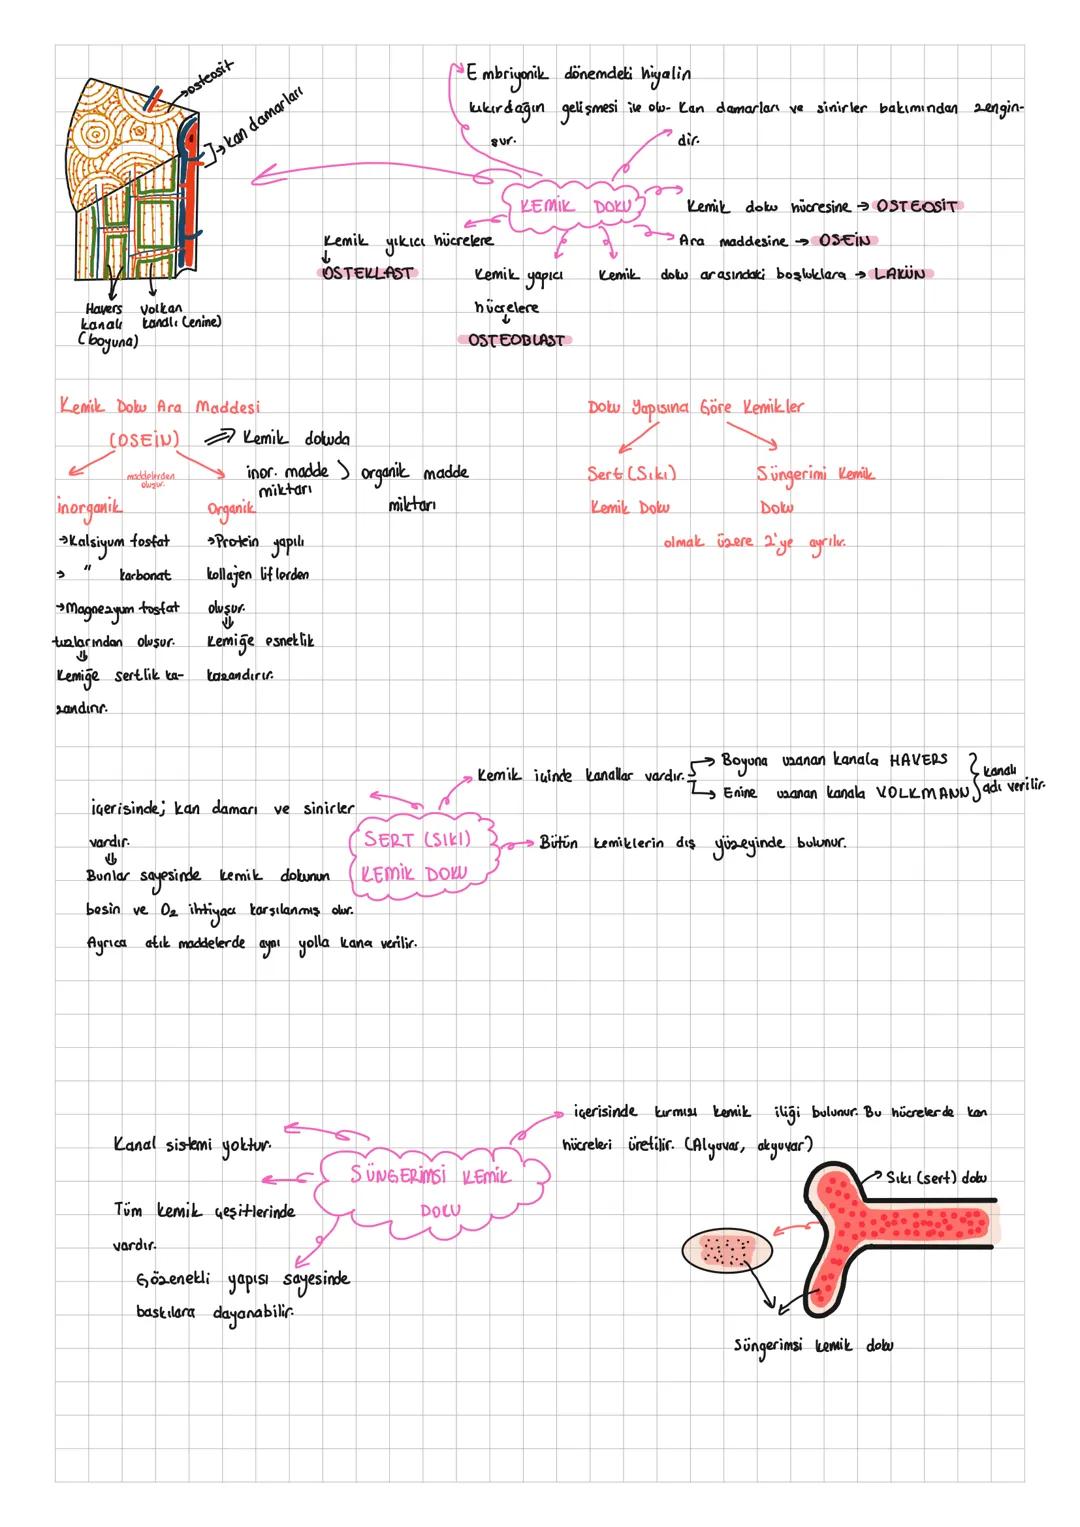 osteosit
kan damarları
Havers
kanalı
(boyuna)
Volkan
kanalı (enine)
Embriyonik dönemdeki hiyalin
kıkırdağın gelişmesi ile olu-
şur.
Kan damarları ve sinirler bakımından zengin-
dir.
KEMİK DOKU
Kemik doku hücresine → OSTEOSİT
Ara maddesine → OSEİN
Kemik doku arasındaki boşluklara → LAKÜN
Kemik yıkıcı hücrelere
↓
OSTEKLAST
Kemik yapıcı
hücrelere
↓
OSTEOBLAST
Kemik Doku Ara Maddesi
(OSEİN) ⇒ Kemik dokuda
inor. madde > organik madde
miktarı miktarı
maddelerden
oluşur.
inorganik
→Kalsiyum fosfat
→ " karbonat
→Magnezyum fosfat
tuzlarından oluşur.
⇓
Kemiğe sertlik ka-
zandırır.
Organik
→Protein yapılı
kollajen liflerden
oluşur.
⇓
Kemiğe esneklik
kazandırır.
Doku Yapısına Göre Kemikler
Sert (Sıkı)
Kemik Doku
Süngerimi Kemik
Doku
olmak üzere 2'ye ayrılır.
Kemik içinde kanallar vardır.
→ Boyuna uzanan kanala HAVERS
→ Enine uzanan kanala VOLKMANN
} kanalı
adı verilir.
SERT (SIKI)
KEMİK DOKU
Bütün kemiklerin dış yüzeyinde bulunur.
içerisinde; kan damarı ve sinirler
vardır.
⇓
Bunlar sayesinde kemik dokunun
besin ve O₂ ihtiyacı karşılanmış olur.
Ayrıca atık maddelerde aynı yolla kana verilir.
içerisinde kırmızı kemik iliği bulunur. Bu hücrelerde kan
hücreleri üretilir. (Alyuvar, akyuvar)
SÜNGERİMSİ KEMİK
DOKU
Kanal sistemi yoktur.
Tüm kemik çeşitlerinde
vardır.
Gözenekli yapısı sayesinde
baskılara dayanabilir.
Sıkı (sert) doku
Süngerimsi kemik doku